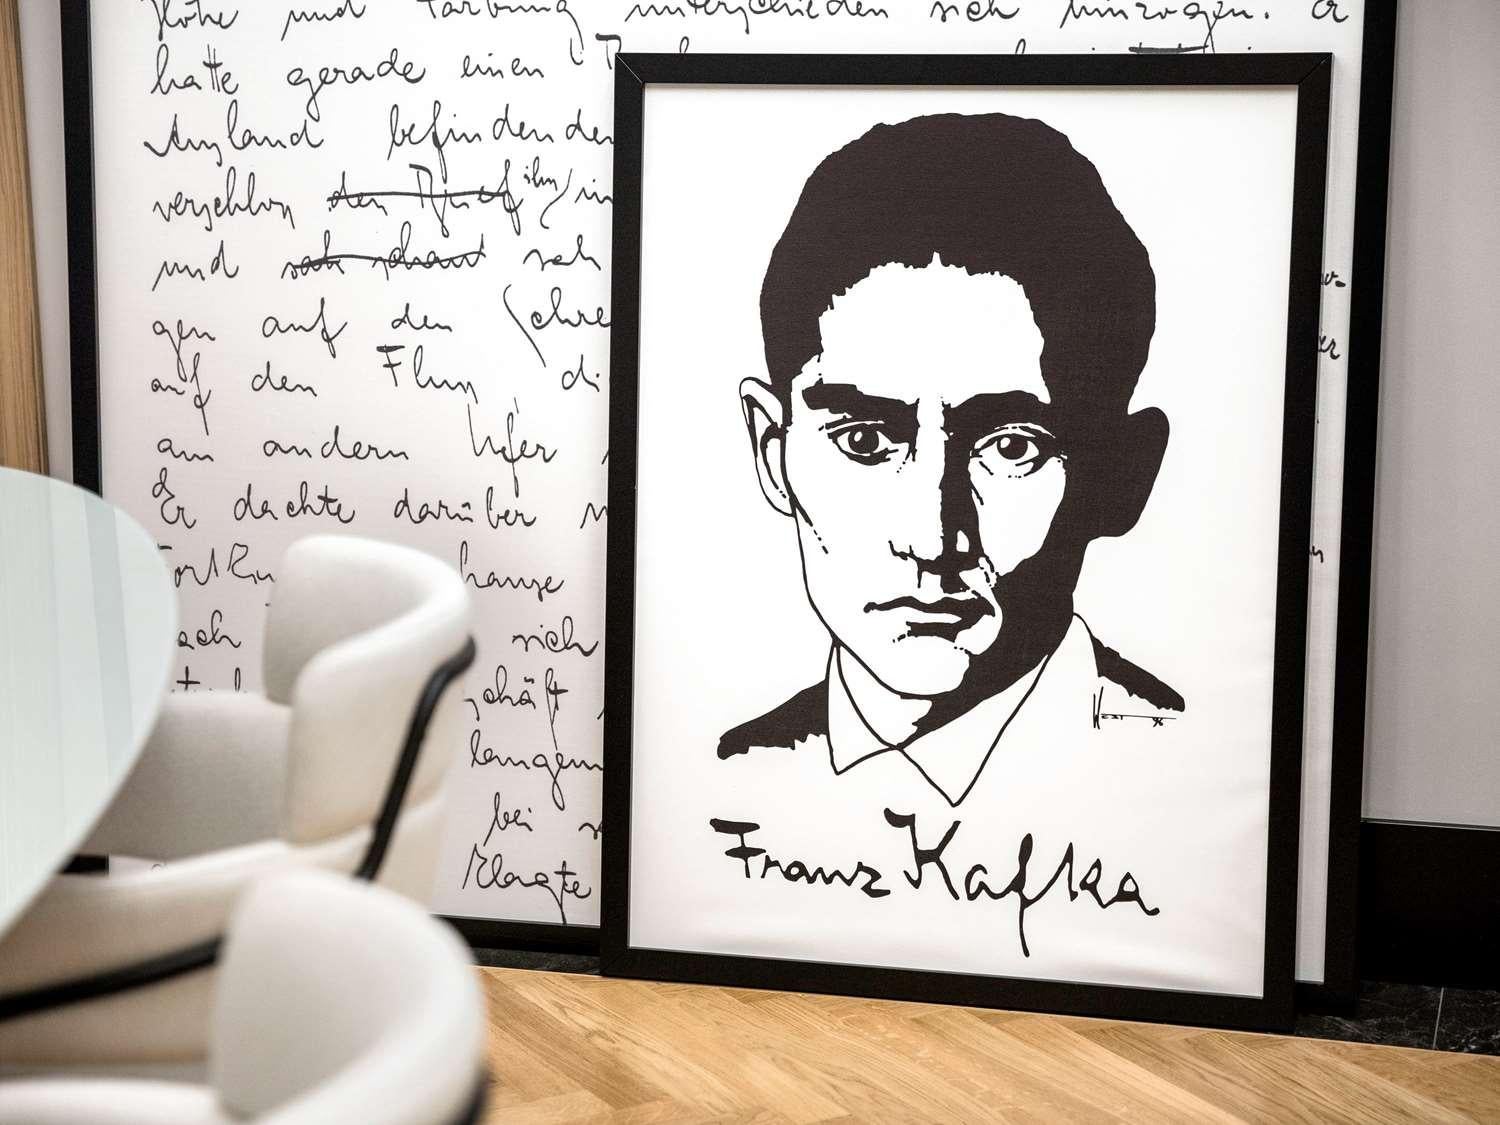 Höhe und Färbung unterschieden sich hinzogen. Er
hatte gerade einen
Ausland befindenden
verschloß den Brief ihn in
und sah
gen auf den Schre
auf den Fluß, di
am andern Ufer
Er dachte darüber
hause
ach sich
schäft
langem
bei
klagte
Franz Kafka